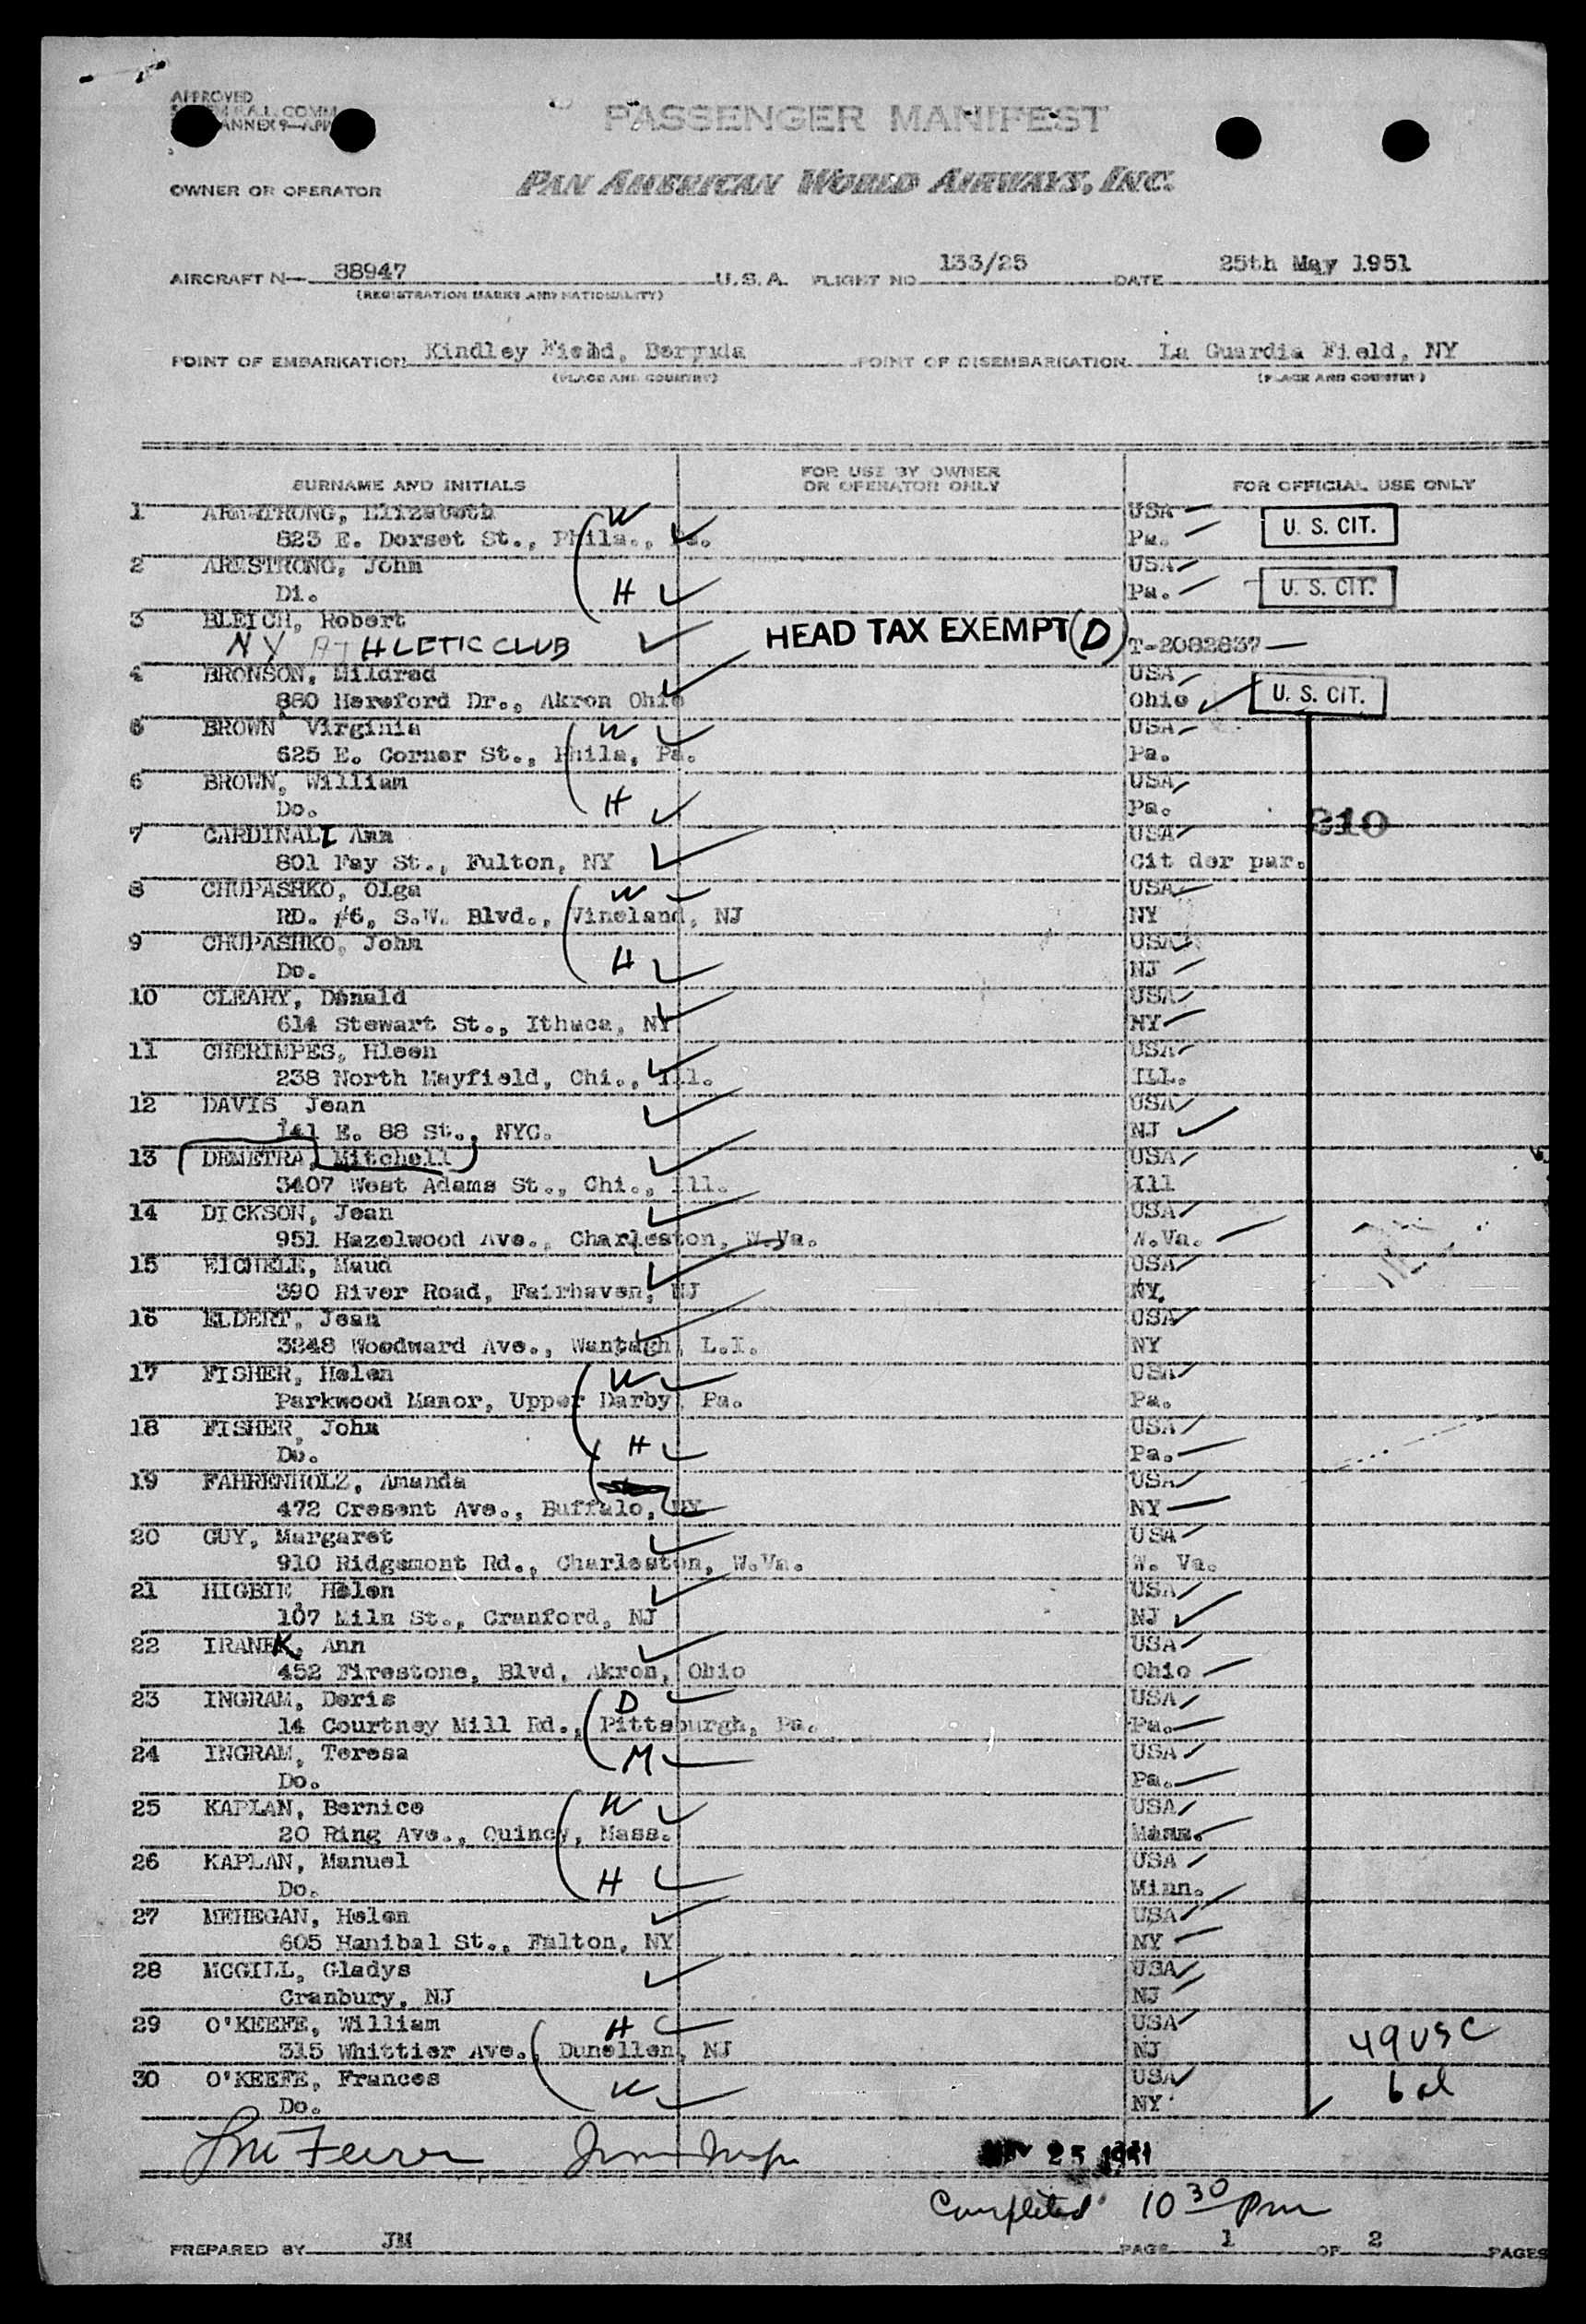 APPROVED
ANNEX 9—APP
PASSENGER MANIFEST
OWNER OR OPERATOR
PAN AMERICAN WORLD AIRWAYS, INC.
AIRCRAFT N— 88947 U.S.A. FLIGHT NO 133/25 DATE 25th May 1951
(REGISTRATION MARKS AND NATIONALITY)
POINT OF EMBARKATION Kindley Field, Bermuda POINT OF DISEMBARKATION La Guardia Field, NY
(PLACE AND COUNTRY) (PLACE AND COUNTRY)
SURNAME AND INITIALS FOR USE BY OWNER OR OPERATOR ONLY FOR OFFICIAL USE ONLY
1 ARMSTRONG, Elizabeth W USA
823 E. Dorset St., Phila., Pa. Pa. U. S. CIT.
2 ARMSTRONG, John USA
Di. H Pa. U. S. CIT.
3 BLEICH, Robert
NY ATHLETIC CLUB HEAD TAX EXEMPT (D) T-2082837
4 BRONSON, Mildred USA
880 Hereford Dr., Akron Ohio Ohio U. S. CIT.
5 BROWN Virginia W USA
625 E. Corner St., Phila, Pa. Pa.
6 BROWN, William USA
Do. H Pa.
210
7 CARDINALI Ann USA
801 Fay St., Fulton, NY Cit der par.
8 CHUPASHKO, Olga W USA
RD. #6, S.W. Blvd., Vineland, NJ NY
9 CHUPASHKO, John USA
Do. H NJ
10 CLEARY, Donald USA
614 Stewart St., Ithaca, NY NY
11 CHERIMPES, Hleen USA
238 North Mayfield, Chi., Ill. ILL.
12 DAVIS Jean USA
141 E. 88 St., NYC. NJ
13 DEMETRA, Mitchell USA
3407 West Adams St., Chi., Ill. Ill
14 DICKSON, Jean USA
951 Hazelwood Ave., Charleston, W.Va. W.Va.
15 EICHELE, Maud USA
390 River Road, Fairhaven, NJ NY.
16 ELDERT, Jean USA
3248 Woodward Ave., Wantagh, L.I. NY
17 FISHER, Helen W USA
Parkwood Manor, Upper Darby, Pa. Pa.
18 FISHER, John USA
Do. H Pa.
19 FAHRENHOLZ, Amanda USA
472 Cresent Ave., Buffalo, NY NY
20 GUY, Margaret USA
910 Ridgemont Rd., Charleston, W.Va. W. Va.
21 HIGBIE Helen USA
107 Miln St., Cranford, NJ NJ
22 IRANEK, Ann USA
452 Firestone, Blvd, Akron, Ohio Ohio
23 INGRAM, Doris D USA
14 Courtney Mill Rd., Pittsburgh, Pa. Pa.
24 INGRAM, Teresa M USA
Do. Pa.
25 KAPLAN, Bernice W USA
20 Ring Ave., Quincy, Mass. Mass.
26 KAPLAN, Manuel USA
Do. H Minn.
27 MEHEGAN, Helen USA
605 Hanibal St., Fulton, NY NY
28 MCGILL, Gladys USA
Cranbury, NJ NJ
29 O'KEEFE, William H USA
315 Whittier Ave., Dunellen, NJ NJ 49 USC
30 O'KEEFE, Frances W USA
Do. NY 6 al
25 1951
Completed 10 30 pm
PREPARED BY JM PAGE 1 OF 2 PAGES